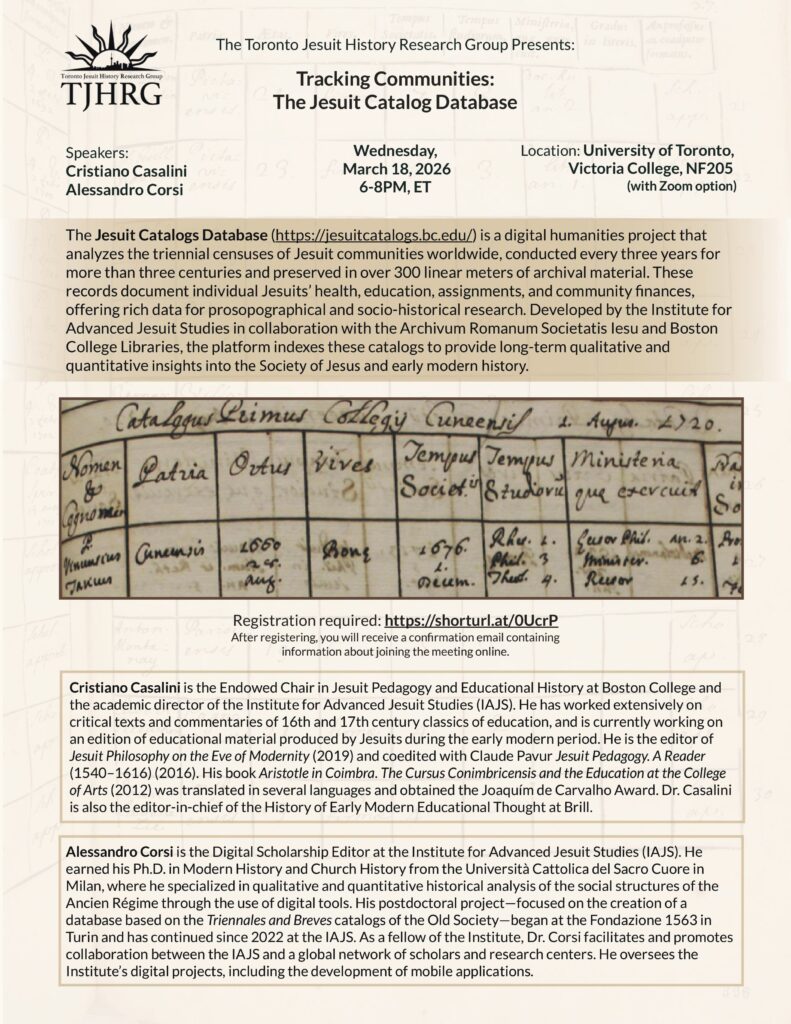 Toronto Jesuit History Research Group
TJHRG
The Toronto Jesuit History Research Group Presents:
Tracking Communities:
The Jesuit Catalog Database
Speakers:
Cristiano Casalini
Alessandro Corsi
Wednesday,
March 18, 2026
6-8PM, ET
Location: University of Toronto,
Victoria College, NF205
(with Zoom option)
The Jesuit Catalogs Database (https://jesuitcatalogs.bc.edu/) is a digital humanities project that
analyzes the triennial censuses of Jesuit communities worldwide, conducted every three years for
more than three centuries and preserved in over 300 linear meters of archival material. These
records document individual Jesuits’ health, education, assignments, and community finances,
offering rich data for prosopographical and socio-historical research. Developed by the Institute for
Advanced Jesuit Studies in collaboration with the Archivum Romanum Societatis Iesu and Boston
College Libraries, the platform indexes these catalogs to provide long-term qualitative and
quantitative insights into the Society of Jesus and early modern history.
Catalogus Primus Collegij Cuneensis 1. Augus. 1720.
Nomen & Cognomen
Patria
Ortus
Vires
Tempus Societ.is
Tempus Studiorũ
Ministeria que exercuit
P.
Cuneensis
1660
aug.
Bonę
1676.
1.
Decem.
Rhe. 1.
Phil. 3
Theol. 4.
Phil. an. 2.
Minister. 6.
15.
Registration required: https://shorturl.at/0UcrP
After registering, you will receive a confirmation email containing
information about joining the meeting online.
Cristiano Casalini is the Endowed Chair in Jesuit Pedagogy and Educational History at Boston College and
the academic director of the Institute for Advanced Jesuit Studies (IAJS). He has worked extensively on
critical texts and commentaries of 16th and 17th century classics of education, and is currently working on
an edition of educational material produced by Jesuits during the early modern period. He is the editor of
Jesuit Philosophy on the Eve of Modernity (2019) and coedited with Claude Pavur Jesuit Pedagogy. A Reader
(1540–1616) (2016). His book Aristotle in Coimbra. The Cursus Conimbricensis and the Education at the College
of Arts (2012) was translated in several languages and obtained the Joaquím de Carvalho Award. Dr. Casalini
is also the editor-in-chief of the History of Early Modern Educational Thought at Brill.
Alessandro Corsi is the Digital Scholarship Editor at the Institute for Advanced Jesuit Studies (IAJS). He
earned his Ph.D. in Modern History and Church History from the Università Cattolica del Sacro Cuore in
Milan, where he specialized in qualitative and quantitative historical analysis of the social structures of the
Ancien Régime through the use of digital tools. His postdoctoral project—focused on the creation of a
database based on the Triennales and Breves catalogs of the Old Society—began at the Fondazione 1563 in
Turin and has continued since 2022 at the IAJS. As a fellow of the Institute, Dr. Corsi facilitates and promotes
collaboration between the IAJS and a global network of scholars and research centers. He oversees the
Institute’s digital projects, including the development of mobile applications.